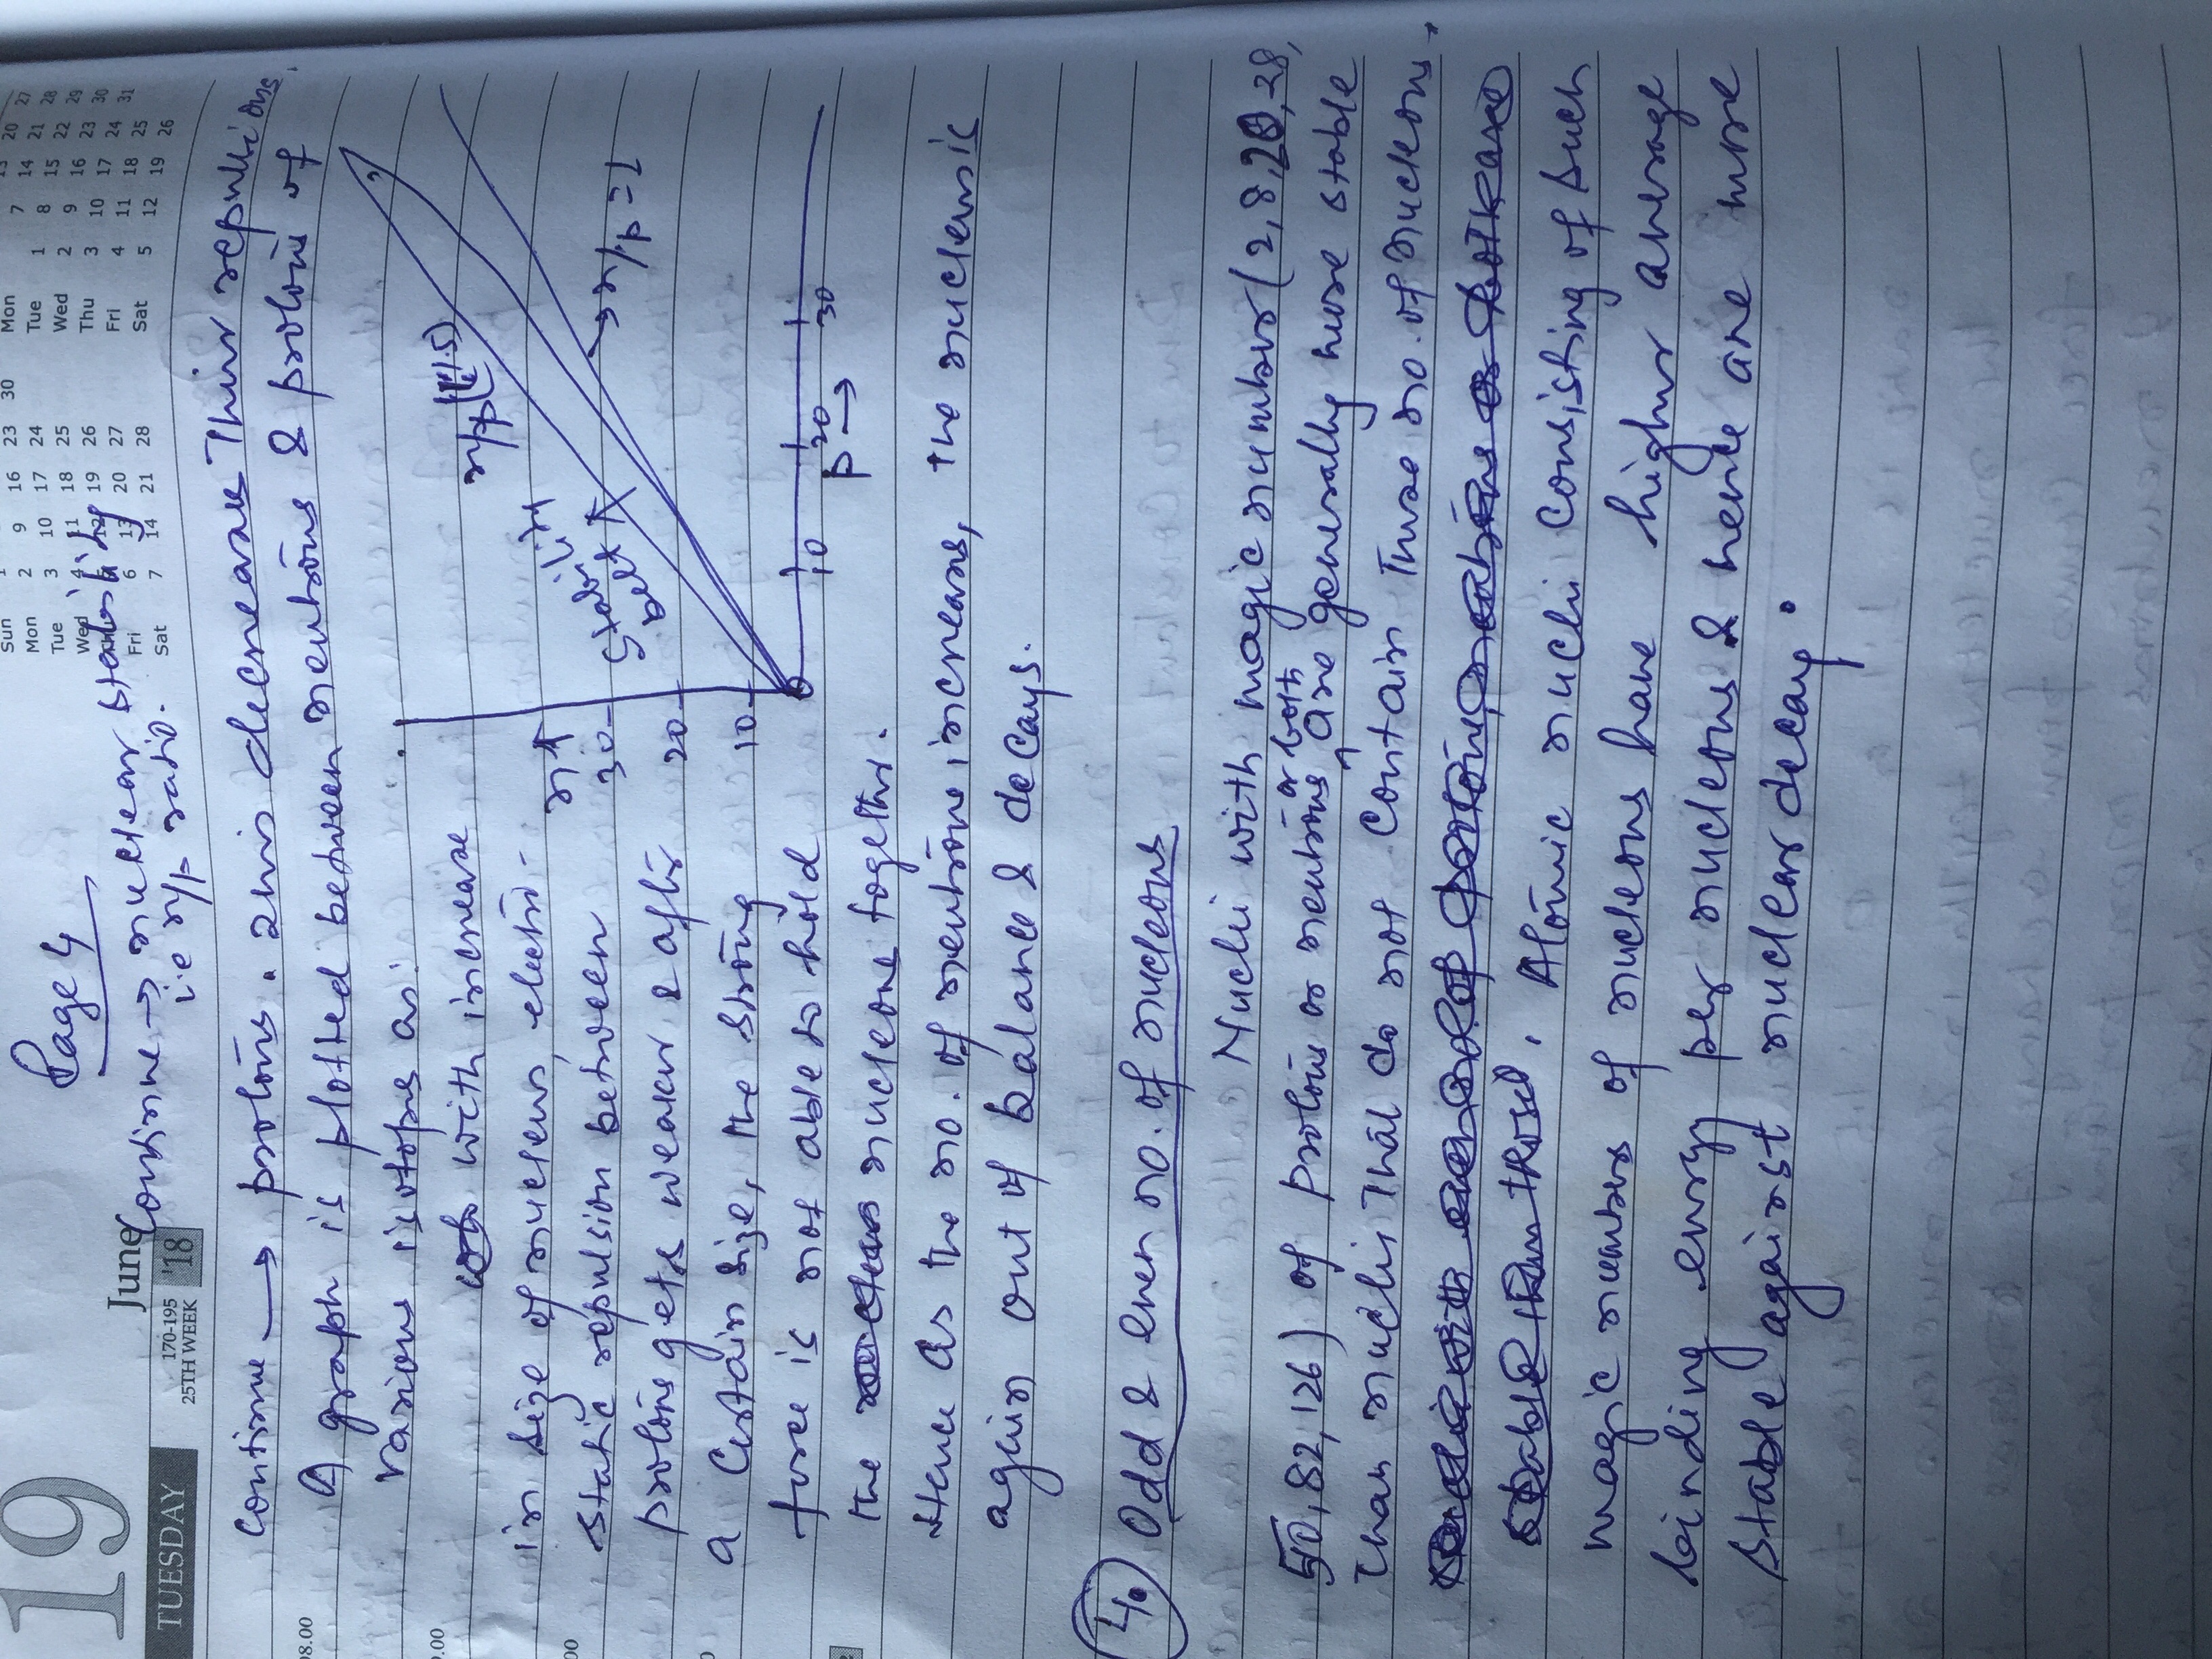 19
June
TUESDAY
170-195
25TH WEEK
'18
Sun
Mon 2 9 16 23 30
Tue 3 10 17 24
Wed 4 11 18 25
12 19 26
Fri 6 13 20 27
Sat 7 14 21 28
Mon 7 14 20 27
Tue 1 8 14 21 28
Wed 2 9 15 22 29
Thu 3 10 16 23 30
Fri 4 11 17 24 31
Sat 5 12 18 25
19 26
Page 4
Continue → nuclear stability
i.e n/p ratio.
Continue → protons. This decrease Their repulsions.
A graph is plotted between neutrons & protons of
various isotopes as:
with increase
in size of nucleus, electro-
static repulsion between
protons gets weaker & after
a certain size, the strong
force is not able to hold
the nucleons together.
n↑
30
20
10
0
10
20
30
p →
Stability
belt
n/p (1.5)
→ n/p = 1
Hence as the no. of neutrons increases, the nucleus is
again out of balance & decays.
4. Odd & even no. of nucleons
Nuclei with magic number (2, 8, 20, 28,
50, 82, 126) of protons or neutrons or both are generally more stable
than nuclei that do not contain These no. of nucleons.
Atomic nuclei consisting of such
magic numbers of nucleons have higher average
binding energy per nucleons & hence are more
stable against nuclear decay.
08.00